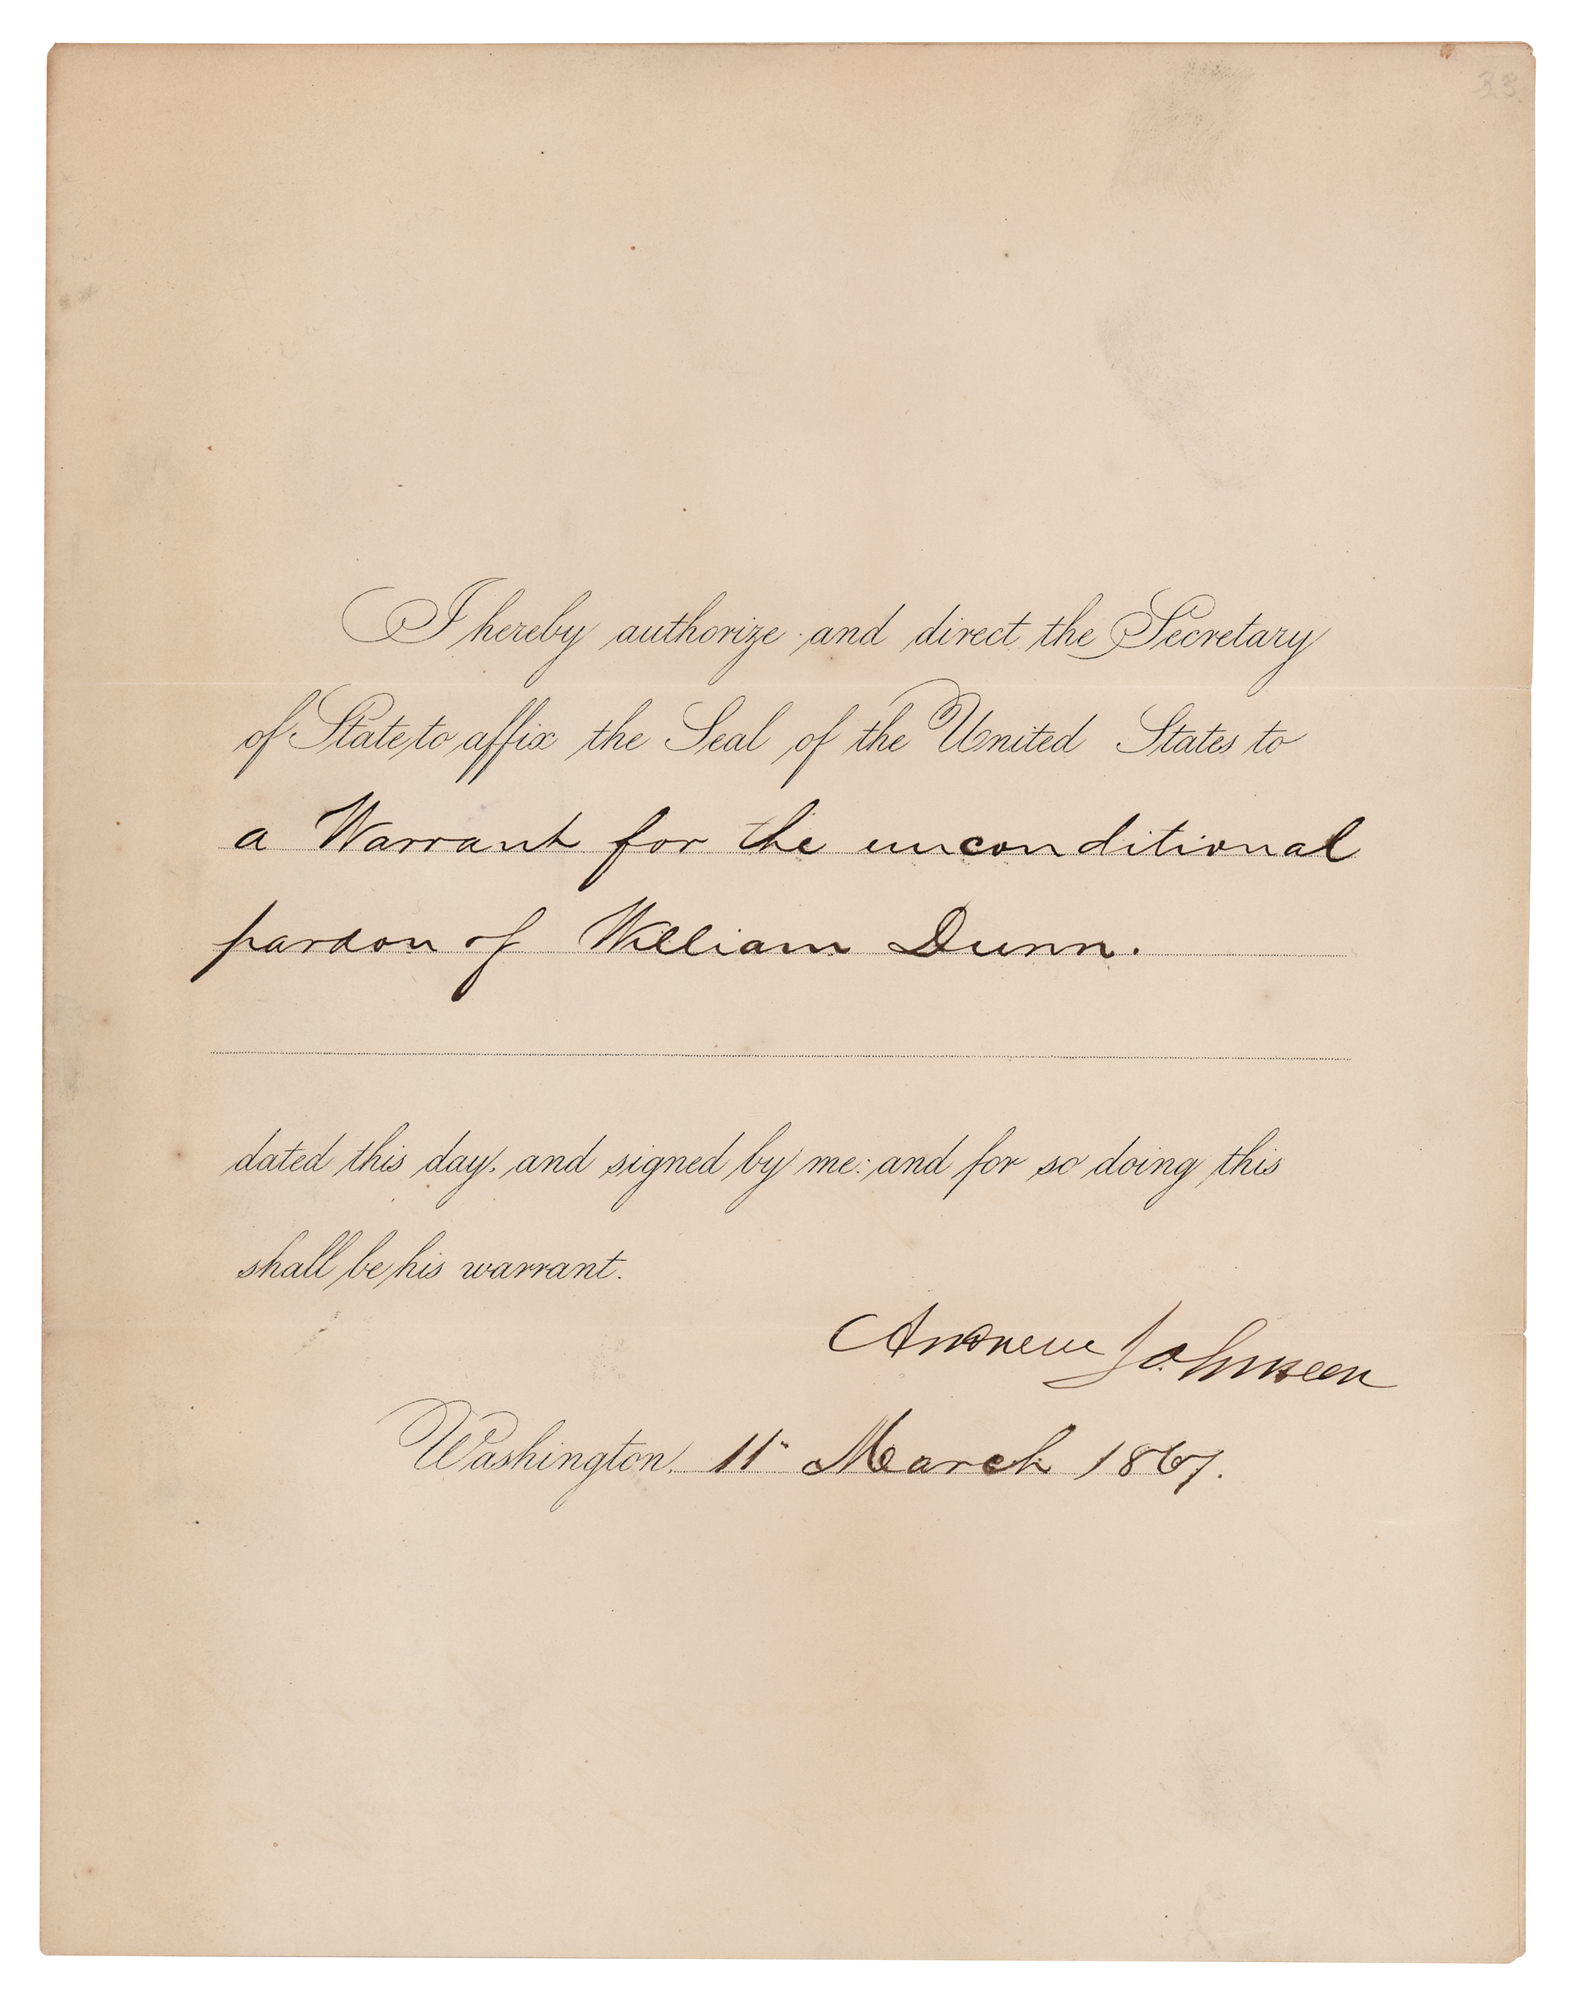 33.
I hereby authorize and direct the Secretary
of State to affix the Seal of the United States to
a Warrant for the unconditional
pardon of William Dunn.
dated this day, and signed by me: and for so doing this
shall be his warrant.
Andrew Johnson
Washington, 11th March 1867.